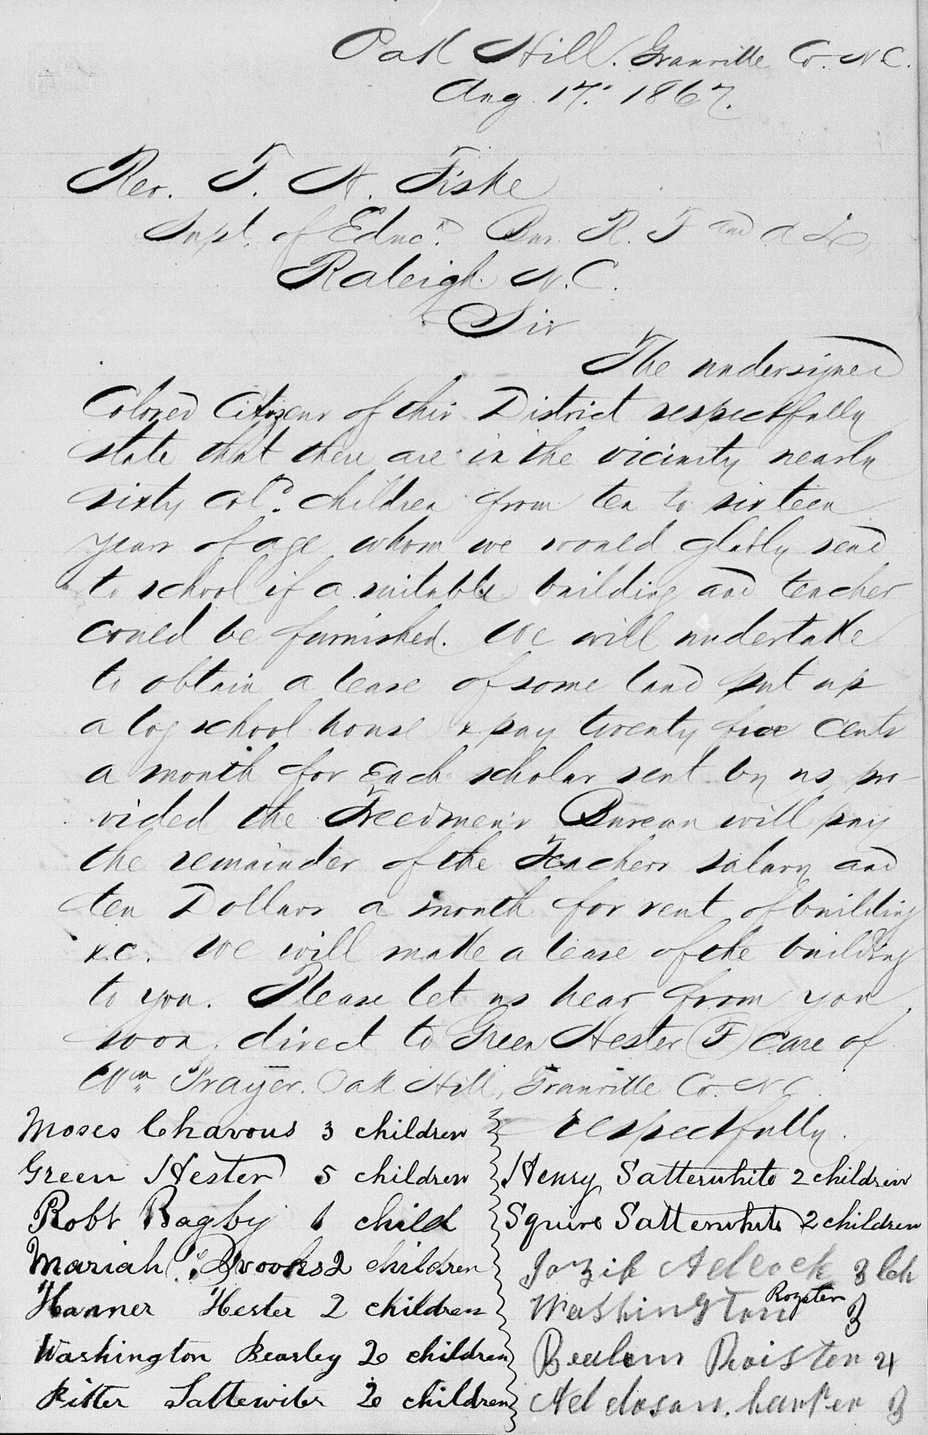 Oak Hill. Granville Co. N.C.
Aug 17. 1867.
Rev. F. A. Fiske
Supt. of Educn. Bur. R. F and A L
Raleigh N.C.
Sir
The undersigned
Colored Citizens of this District respectfully
state that there are in the vicinity nearly
sixty cold. children from ten to sixteen
years of age whom we would gladly send
to school if a suitable building and teacher
could be furnished. We will undertake
to obtain a lease of some land put up
a log school house & pay twenty five cents
a month for each scholar sent by us, pro-
vided the Freedmen's Bureau will pay
the remainder of the Teachers salary and
ten Dollars a month for rent of building
&c. We will make a lease of the building
to you. Please let us hear from you
soon. direct to Green Hester (F) care of
Wm Thayer. Oak Hill, Granville Co. N.C.
Respectfully.
Moses Chavous 3 children
Green Hester 5 children
Robt Bagby 1 child
Mariah Brooks 2 children
Hanner Hester 2 children
Washington Bearley 2 children
Ritter Sattewiter 2 children
Henry Satterwhite 2 children
Squire Satterwhite 2 children
Jozih Adcock 3 Ch
Washington Royster 3
Roister 4
harper 3